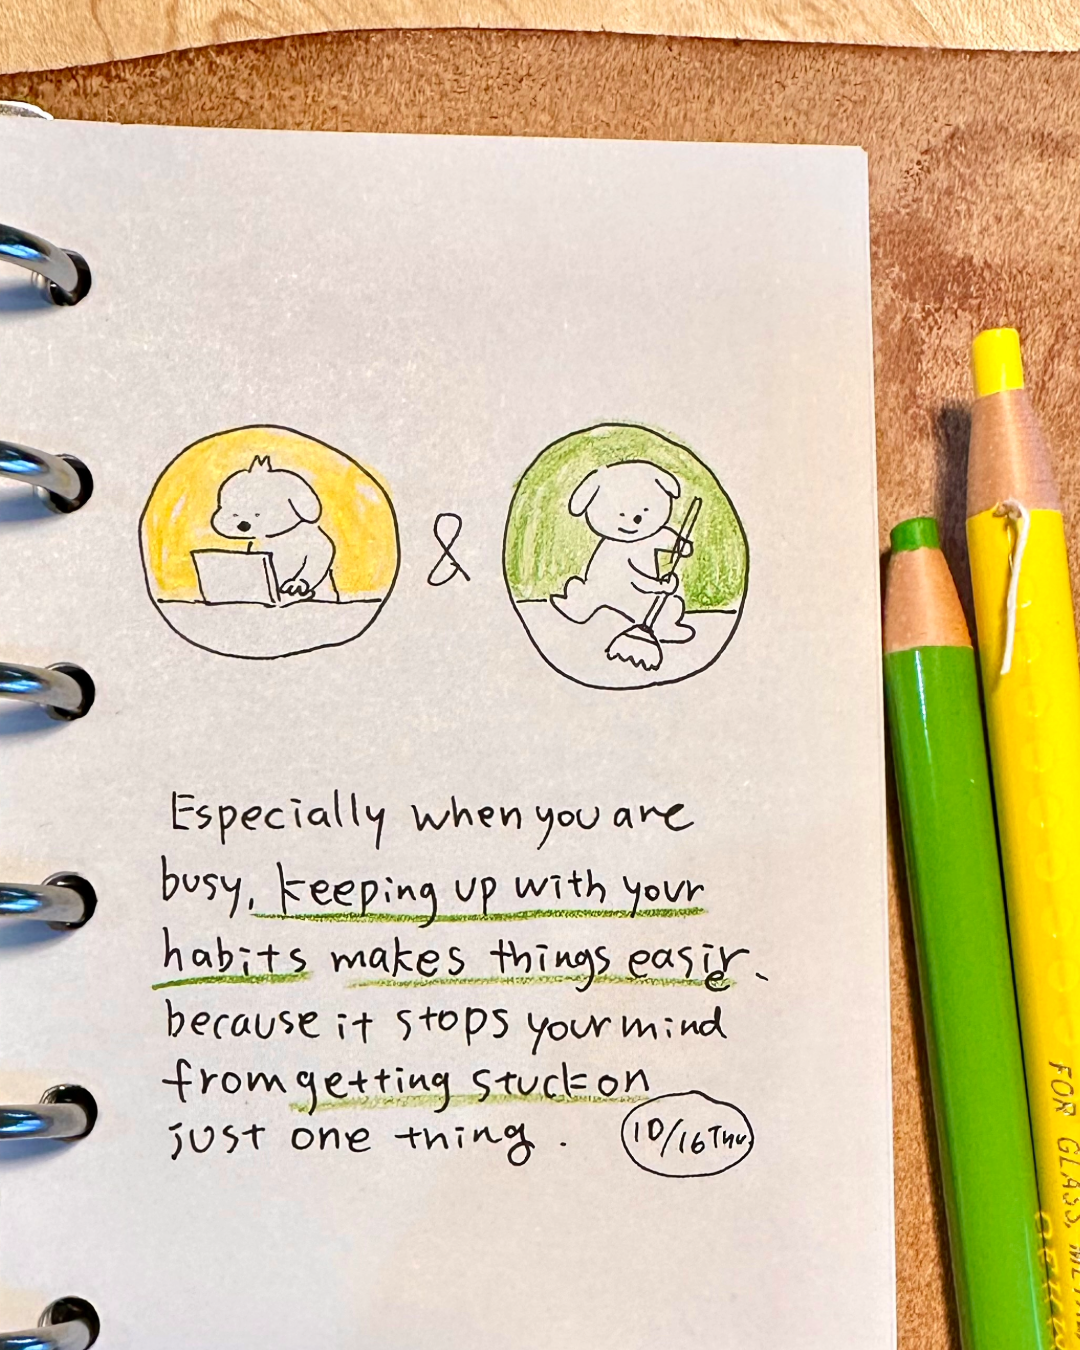 &
Especially when you are
busy, keeping up with your
habits makes things easier.
because it stops your mind
from getting stuck on
just one thing.
10/16 Thu.
FOR GLASS, META